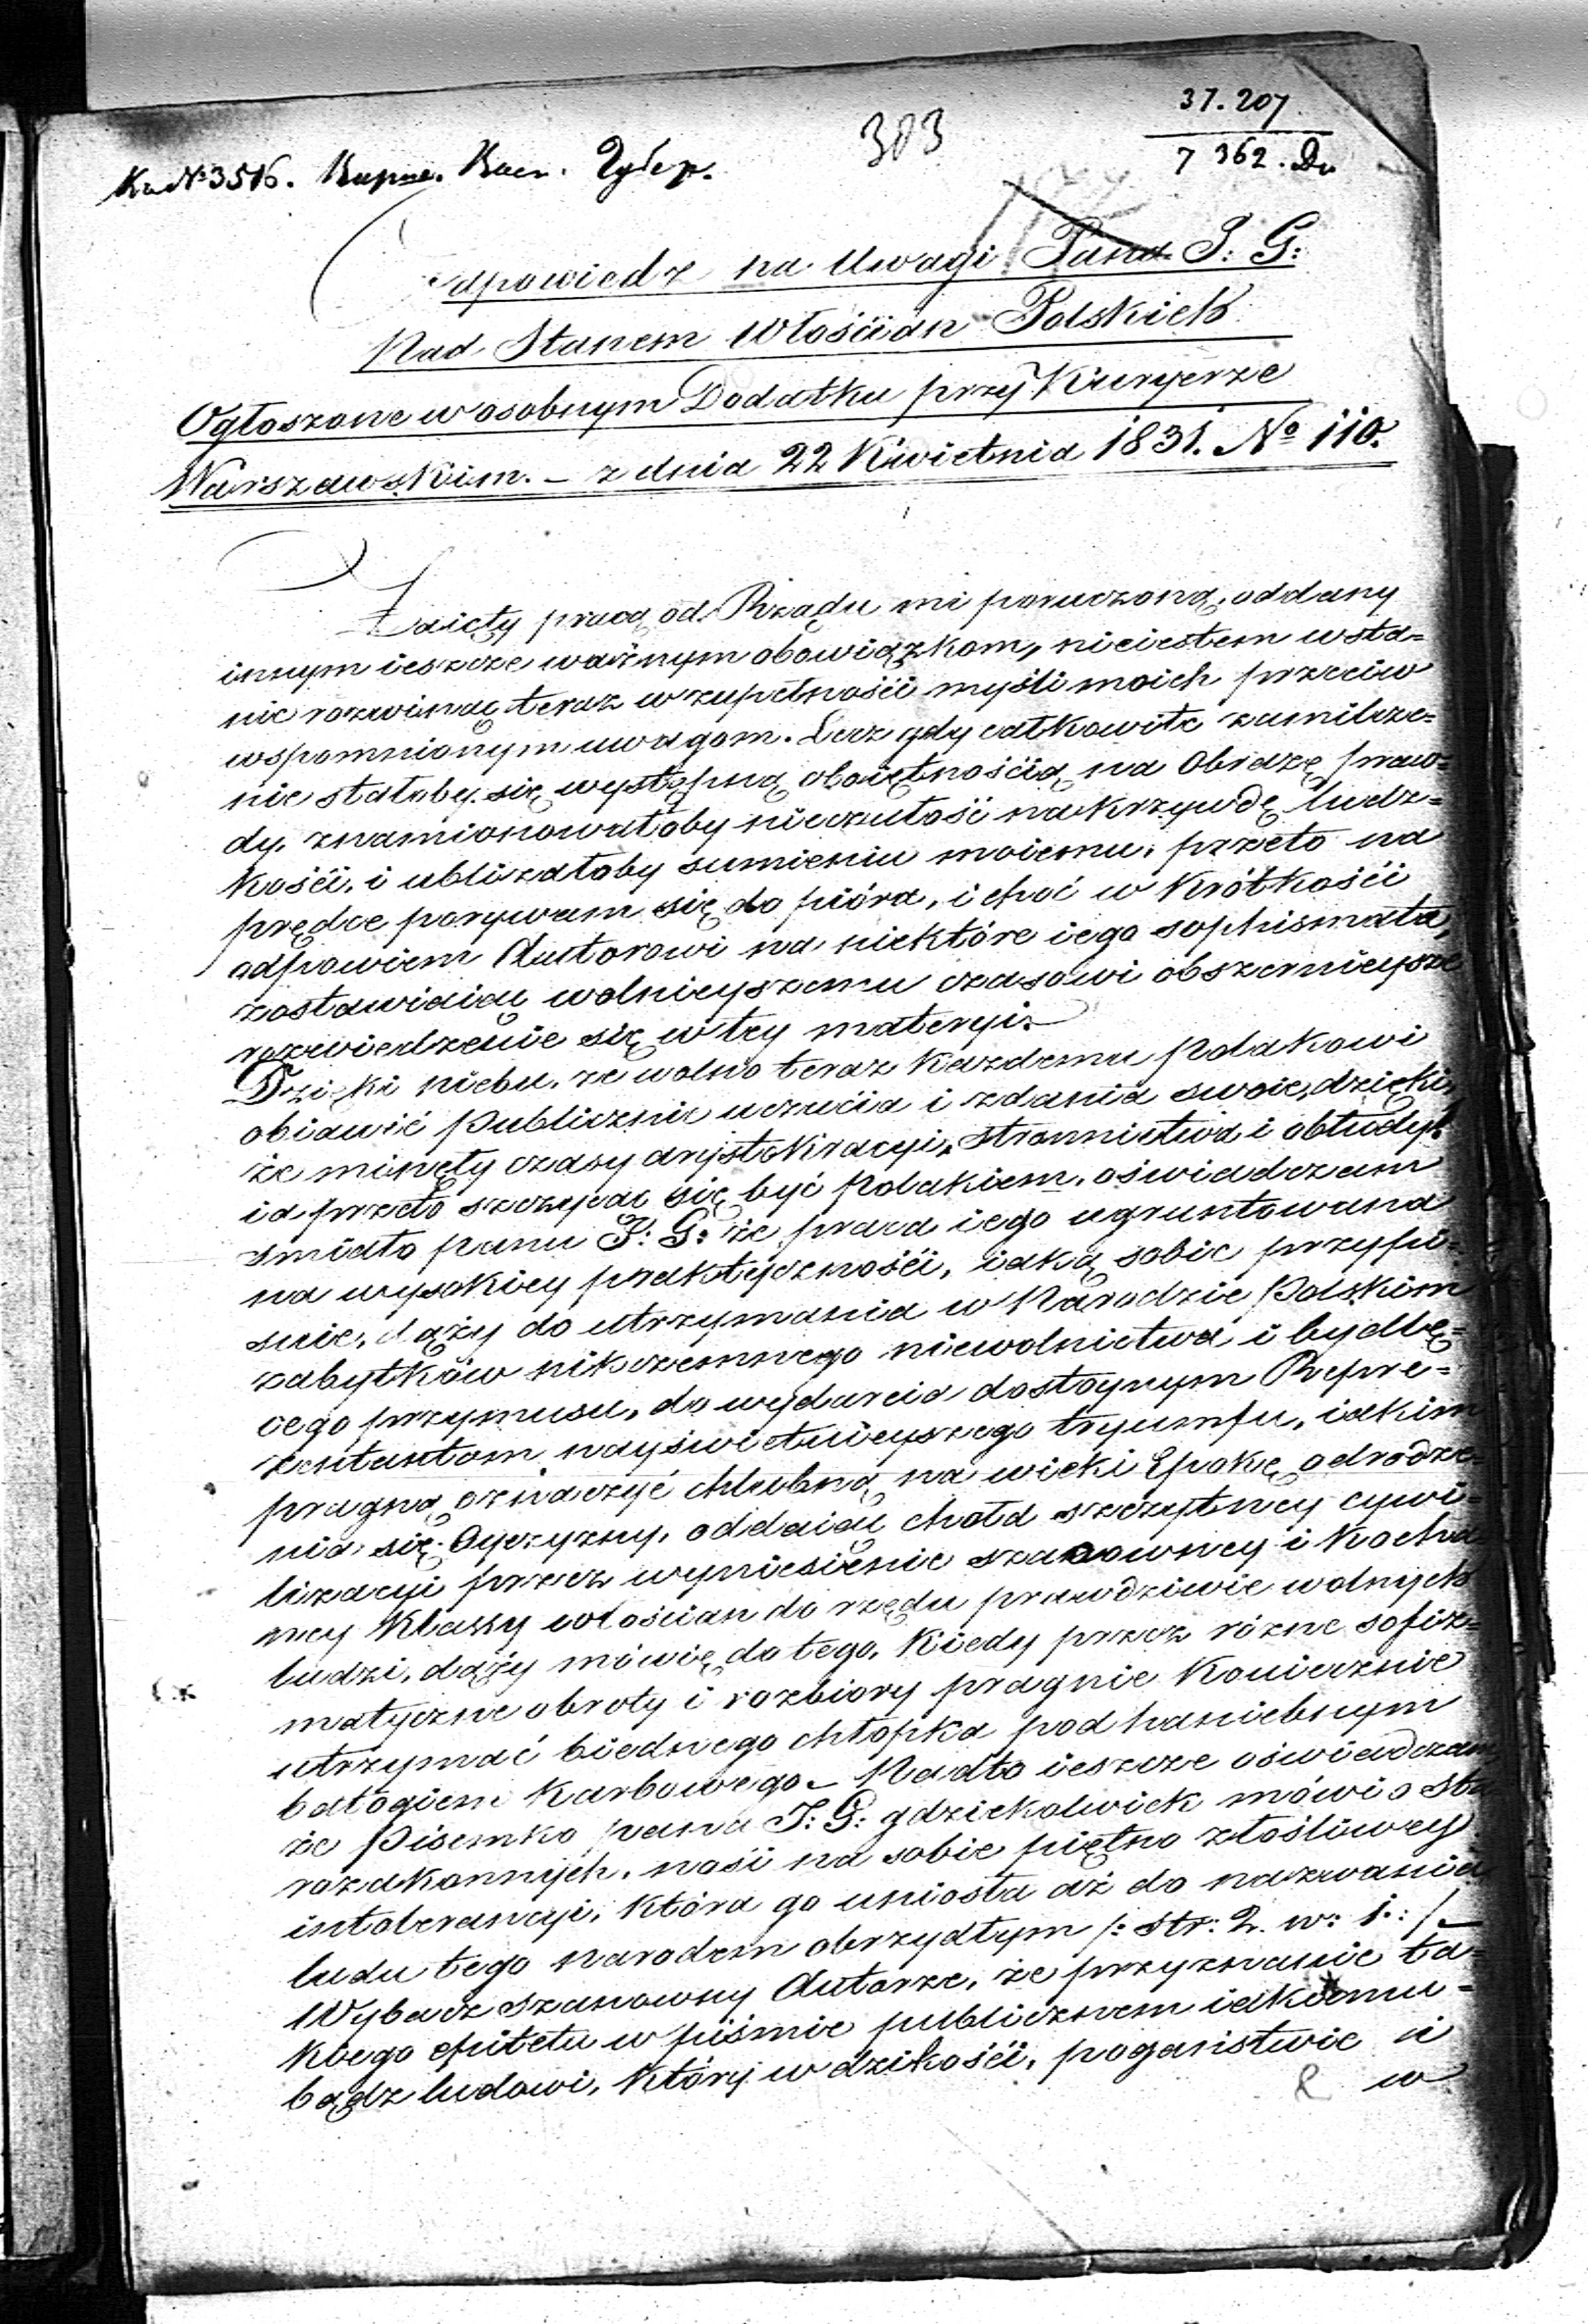 303
37.207
7 362. Ди
№ 3516.
Odpowiedź na Uwagi Pana J: G:
Nad Stanem Włościan Polskich
Ogłoszone w osobnym Dodatku przy Kuryerze
Warszawskim. – z dnia 22 Kwietnia 1831. No 110.
Zaięty pracą od Rządu mi poruczoną, oddany
innym ieszcze ważnym obowiązkom, nieiestem w sta=
nie rozwinąć teraz w zupełności myśli moich przeciw
wspomnionym uwagom. Lecz gdy całkowite zamilcze=
nie stałoby się występną oboiętnością na obrazę praw=
dy, znamionowałoby nieczułość na krzywdę ludz=
kości, i ubliżałoby sumieniu moiemu, przeto na
prędce porywam się do pióra, i choć w krótkości
odpowiem Autorowi na niektóre iego sophismata,
zostawiaiąc wolnieyszemu czasowi obszernieysze
rozwiedzenie się w tey materyi.
Dzięki niebu, że wolno teraz każdemu Polakowi
obiawić publicznie uczucia i zdania swoie, dzięki,
że minęły czasy arystokracyi, stronnictwa i obłudy!
ia przeto szczycąc się być Polakiem, oświadczam
śmiało panu J: G: że praca iego ugruntowana
na wysokiey praktyczności, iaką sobie przypi=
suie, dąży do utrzymania w Narodzie Polskim
zabytków nikczemnego niewolnictwa i bydlę=
cego przymusu, do wydarcia dostoynym Repre=
zentantom nayświetnieyszego tryumfu, iakim
pragną oznaczyć chlubną na wieki Epokę odrodze=
nia się Oyczyzny, oddaiąc chołd szczytney cywi=
lizacyi przez wyniesienie szanowney i kocha
ney klassy włościan do rzędu prawdziwie wolnych
ludzi, dąży mówię do tego, kiedy przez różne sofiz=
matyczne obroty i rozbiory pragnie koniecznie
utrzymać biednego chłopka pod haniebnym
batogiem karbowego. – Nadto ieszcze oświadczam
że Pisemko pana J: G: gdziekolwiek mówi o sta
rozakonnych, nosi na sobie piętno złośliwey
intolerancyi, która go uniosła aż do nazwania
ludu tego narodem obrzydłym /: str: 2. w: 1.: /. –
Wybacz szanowny Autorze, że przyznanie ta=
kiego epitetu w piśmie publicznem iakiemu=
bądz ludowi, który w dzikości, pogaństwie i
w